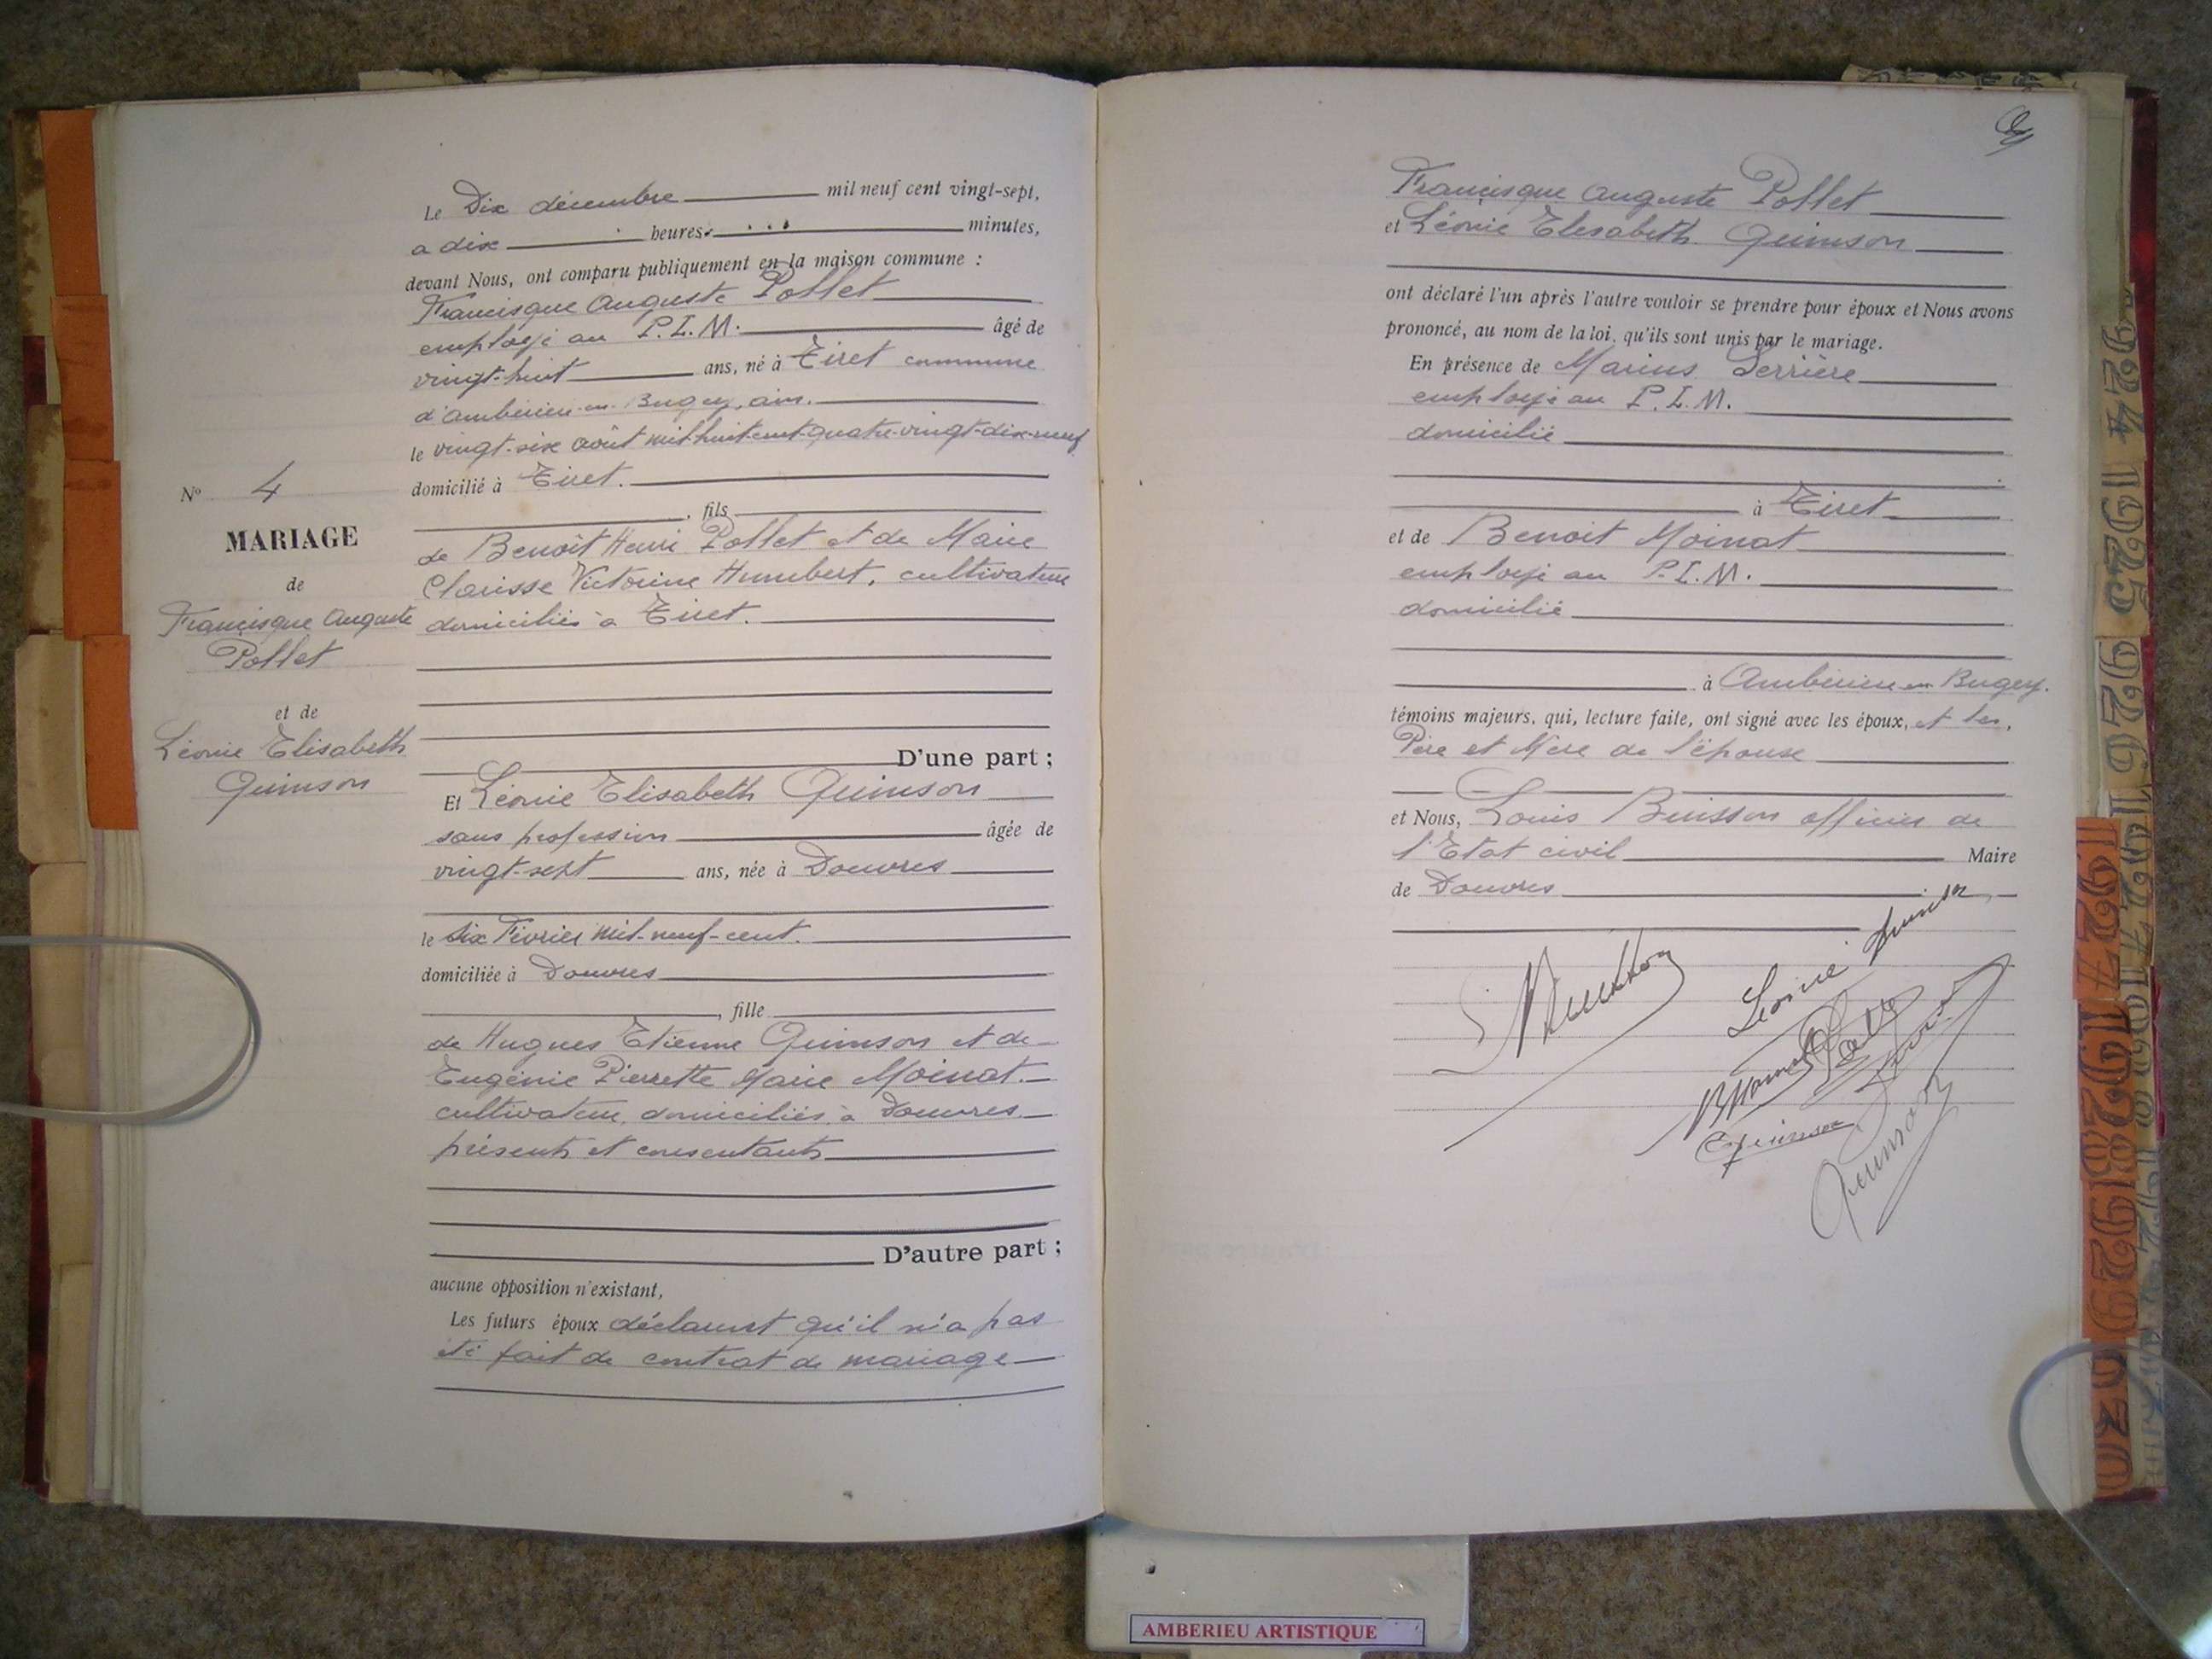 Le Dix décembre mil neuf cent vingt-sept,
a dix heures minutes,
devant Nous, ont comparu publiquement en la maison commune :
Francisque Auguste Pollet
employé au P.L.M. âgé de
vingt-huit ans, né à Tiret commune
d'Ambérieu-en-Bugey, ain.
le vingt-six août mil huit cent quatre-vingt-dix-neuf
domicilié à Tiret.
, fils
de Benoît Henri Pollet et de Marie
Clarisse Victorine Humbert, cultivateurs
domiciliés à Tiret.
D'une part ;
Et Léonie Elisabeth Quinson
sans profession âgée de
vingt-sept ans, née à Douvres
le six Février mil-neuf-cent.
domiciliée à Douvres
, fille
de Hugues Etienne Quinson et de
Eugénie Pierrette Marie Moinat.
cultivateurs, domiciliés à Douvres
présents et consentants
D'autre part ;
aucune opposition n'existant,
Les futurs époux déclarent qu'il n'a pas
été fait de contrat de mariage
N° 4
MARIAGE
de
Francisque Auguste
Pollet
et de
Léonie Elisabeth
Quinson
Francisque Auguste Pollet
et Léonie Elisabeth Quinson
ont déclaré l'un après l'autre vouloir se prendre pour époux et Nous avons
prononcé, au nom de la loi, qu'ils sont unis par le mariage.
En présence de Marius
employé au P.L.M.
domicilié
à Tiret
et de Benoit Moinat
employé au P.L.M.
domicilié
à Ambérieu-en-Bugey.
témoins majeurs, qui, lecture faite, ont signé avec les époux, et les
Père et Mère de l'épouse
et Nous, Louis Buisson officier de
l'Etat civil Maire
de Douvres
Léonie Quinson
Quinson
Quinson
1924
1925
1926
1927
1928
1929
1930
AMBERIEU ARTISTIQUE